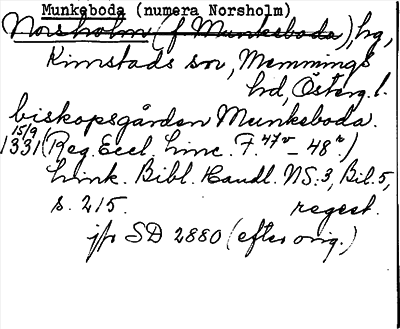 Munkeboda (numera Norsholm)
Norsholm (f Munkeboda), hg,
Kimstads sn, Memmings
hd, Österg. l.
biskopsgården Munkeboda.
15/9
1331 (Reg. Eccl. Linc. F. 47v - 48r)
Link. Bibl. Handl. NS:3, Bil. 5,
s. 215. regest.
jfr SD 2880 (efter orig.)